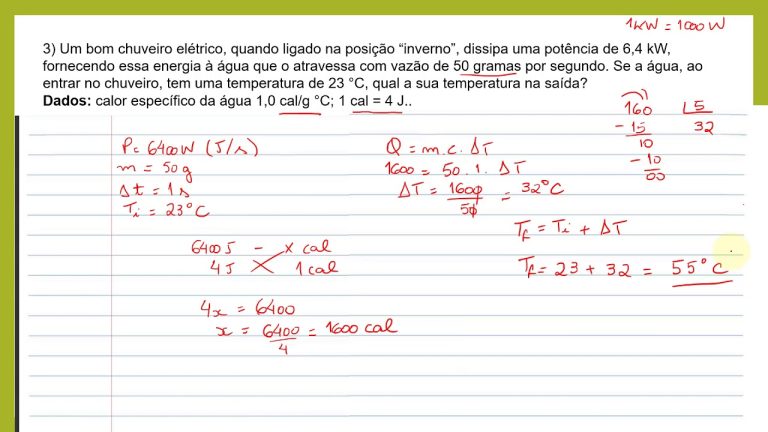 1kW = 1000 W
3) Um bom chuveiro elétrico, quando ligado na posição “inverno”, dissipa uma potência de 6,4 kW,
fornecendo essa energia à água que o atravessa com vazão de 50 gramas por segundo. Se a água, ao
entrar no chuveiro, tem uma temperatura de 23 °C, qual a sua temperatura na saída?
Dados: calor específico da água 1,0 cal/g °C; 1 cal = 4 J..
P = 6400 W (J/s)
m = 50 g
Δt = 1 s
Ti = 23°C
6400 J – x cal
4 J 1 cal
4x = 6400
x = 6400/4 = 1600 cal
Q = m.c.ΔT
1600 = 50.1.ΔT
ΔT = 1600/50 = 32°C
160 5
-15 32
10
-10
00
Tf = Ti + ΔT
Tf = 23 + 32 = 55°C